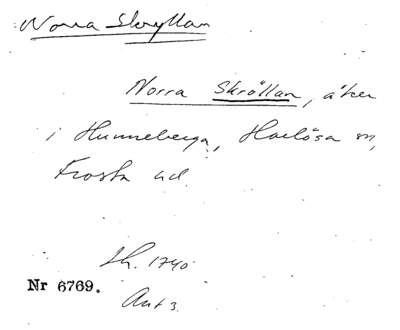 Norra Skryllan
Norra Skröllan, åker
i Hunneberga, Harlösa sn,
Frosta hd.
Lh. 1740
Nr 6769.
Ant 3.